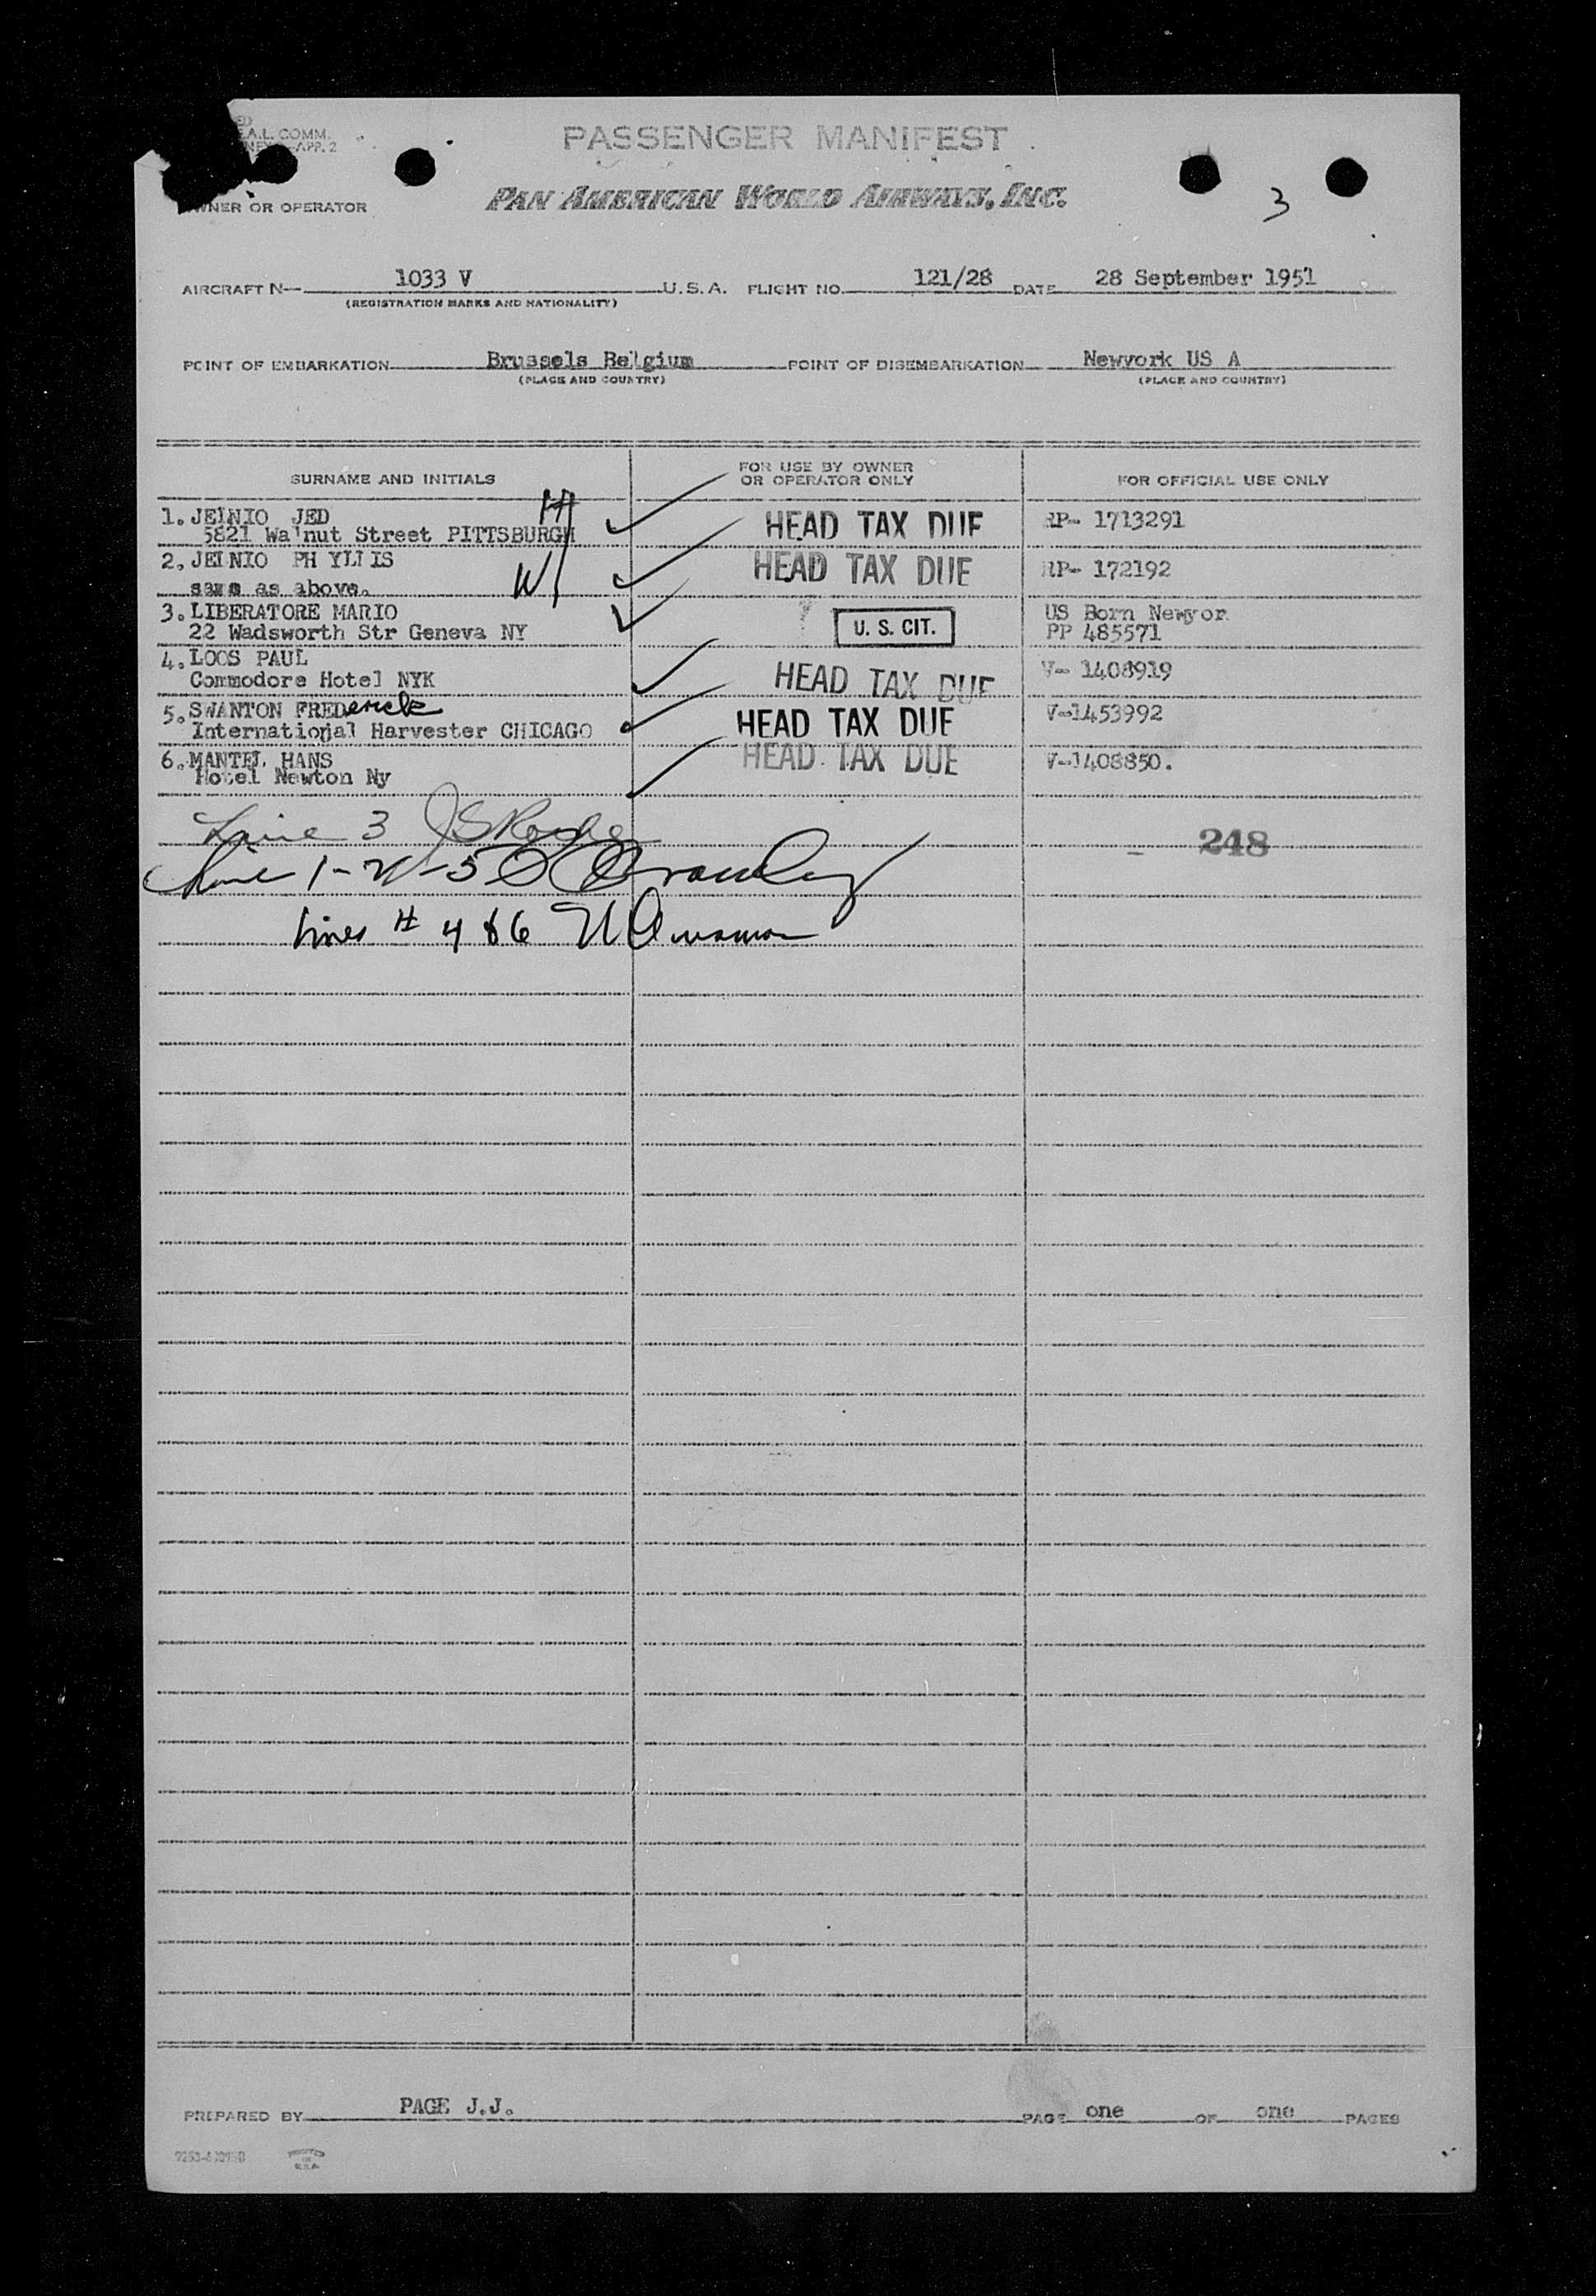 A.L. COMM.
APP. 2
PASSENGER MANIFEST
OWNER OR OPERATOR
PAN AMERICAN WORLD AIRWAYS, INC.
3
AIRCRAFT N— 1033 V U.S.A. FLIGHT NO. 121/28 DATE 28 September 1951
(REGISTRATION MARKS AND NATIONALITY)
POINT OF EMBARKATION Brussels Belgium POINT OF DISEMBARKATION Newyork US A
(PLACE AND COUNTRY) (PLACE AND COUNTRY)
SURNAME AND INITIALS FOR USE BY OWNER OR OPERATOR ONLY FOR OFFICIAL USE ONLY
1. JEINIO JED H HEAD TAX DUE RP- 1713291
5821 Walnut Street PITTSBURGH
2. JEINIO PH YLLIS HEAD TAX DUE RP- 172192
same as above. W
3. LIBERATORE MARIO U. S. CIT. US Born Newyor
22 Wadsworth Str Geneva NY PP 485571
4. LOOS PAUL HEAD TAX DUE V- 1408919
Commodore Hotel NYK
5. SWANTON FREDerick HEAD TAX DUE V-1453992
International Harvester CHICAGO
6. MANTEL HANS HEAD TAX DUE V-1408850.
Hotel Newton Ny
Line 3
248
Line 1-2-5
Lines # 4 & 6
PREPARED BY PAGE J.J. PAGE one OF one PAGES
PRINTED IN U.S.A.